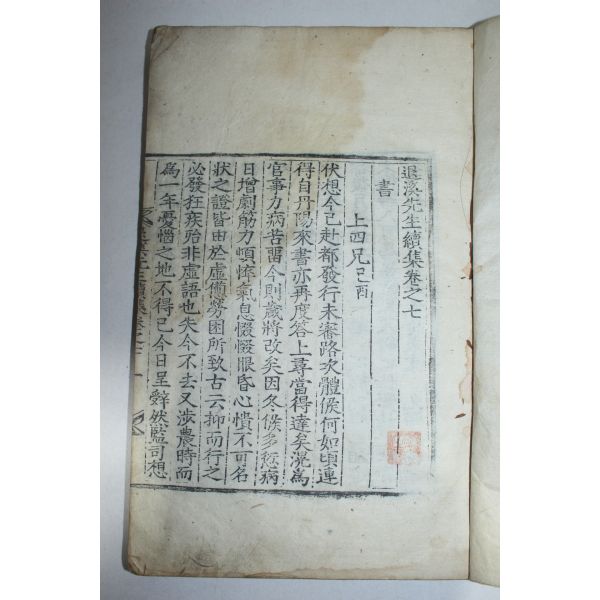 退溪先生續集卷之七
書
上四兄 己酉
伏想今已赴都發行未審路次體候何如頃連
得自丹陽來書亦再度答上尋當得達矣滉爲
官事力病苦留今則歲將改矣因冬候多愆病
日增劇筋力頓憊氣息惙惙眼昏心憒不可名
狀之證皆由於虛憊勞困所致古云抑而行之
必發狂疾殆非虛語也失今不去又涉農時而
爲一年憂惱之地不得已今日呈辭然監司想